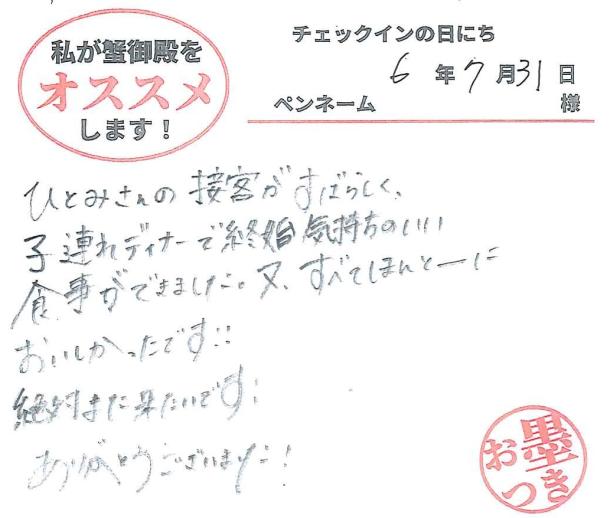 私が蟹御殿を
オススメ
します！
チェックインの日にち
6年7月31日
ペンネーム 様
ひとみさんの接客がすばらしく、
子連れディナーで終婚気持ちのいい
食事ができました。又、すべてほんとーに
おいしかったです!!
絶対また来たいです!
ありがとうございました!
お墨つき